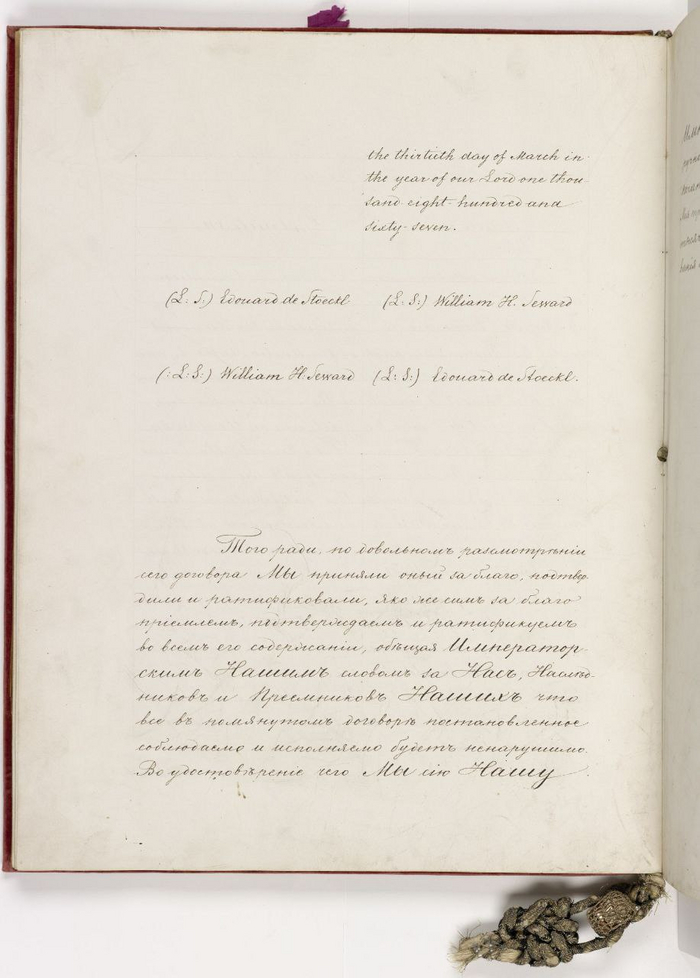 the thirtieth day of March in
the year of our Lord one thou-
sand eight hundred and
sixty-seven.
(L: S.) Edouard de Stoeckl (L: S:) William H. Seward
(:L: S:) William H. Seward (L: S:) Edouard de Stoeckl.
Того ради, по довольномъ разсмотрѣніи
сего договора Мы приняли оный за благо, подтвер-
дили и ратификовали, яко же симъ за благо
пріемлемъ, подтверждаемъ и ратификуемъ
во всемъ его содержаніи, обѣщая Император-
скимъ Нашимъ словомъ за Насъ, Наслѣд-
никовъ и Преемниковъ Нашихъ что
все въ помянутомъ договорѣ постановленное
соблюдаемо и исполняемо будетъ ненарушимо.
Во удостовѣреніе чего Мы сію Нашу